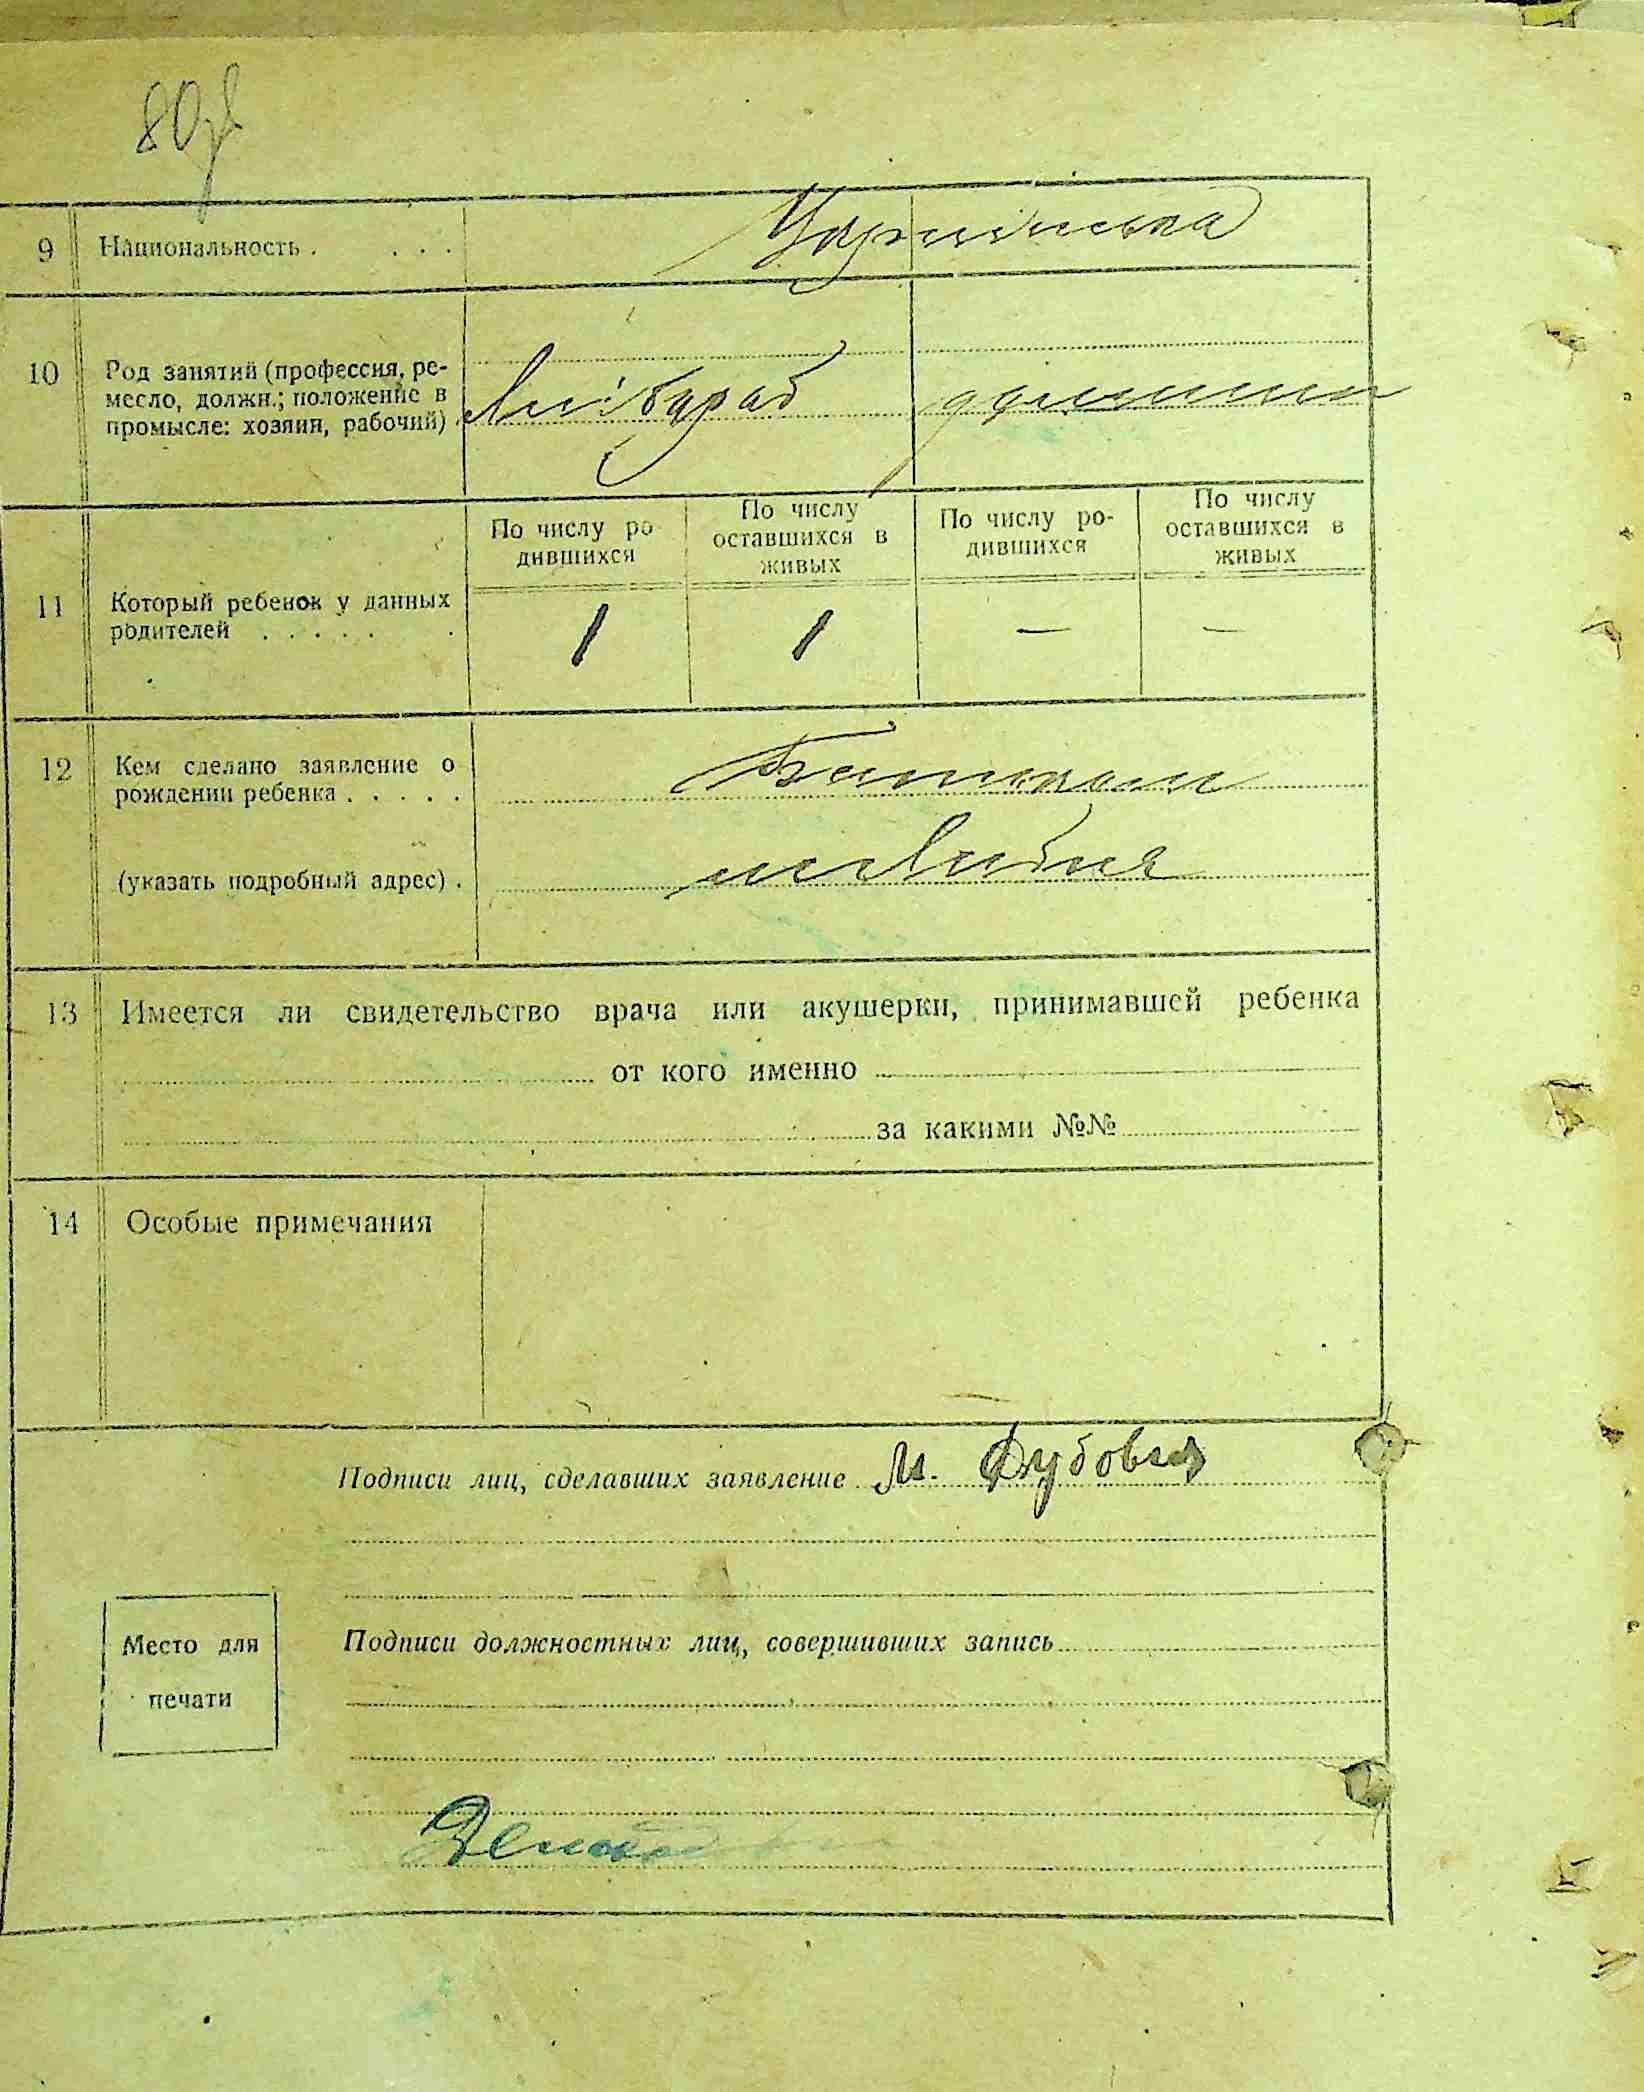 9 Национальность . . . . Украинська
10 Род занятий (профессия, ре-
месло, должн.; положение в
промысле: хозяин, рабочий)
11 Который ребенок у данных
родителей . . . . . .
По числу ро-
дившихся
По числу
оставшихся в
живых
По числу ро-
дившихся
По числу
оставшихся в
живых
1 1 — —
12 Кем сделано заявление о
рождении ребенка . . . . . Батьком
(указать подробный адрес) .
13 Имеется ли свидетельство врача или акушерки, принимавшей ребенка
от кого именно
за какими №№
14 Особые примечания
Подписи лиц, сделавших заявление М.
Место для
печати
Подписи должностных лиц, совершивших запись